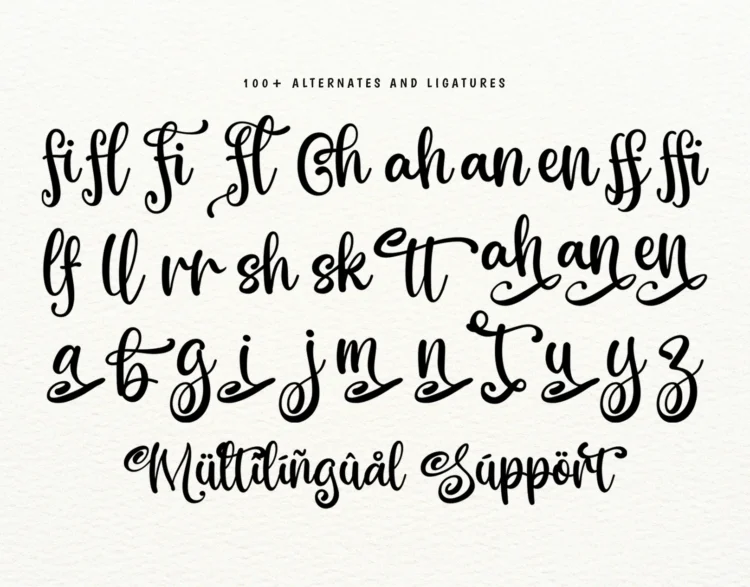 100+ ALTERNATES AND LIGATURES
fi fl fi fl Ch ah an en ff ffi
lf ll rr sh sk tt ah an en
a b g i j m n T u y z
Mültilíñgûål Súppört